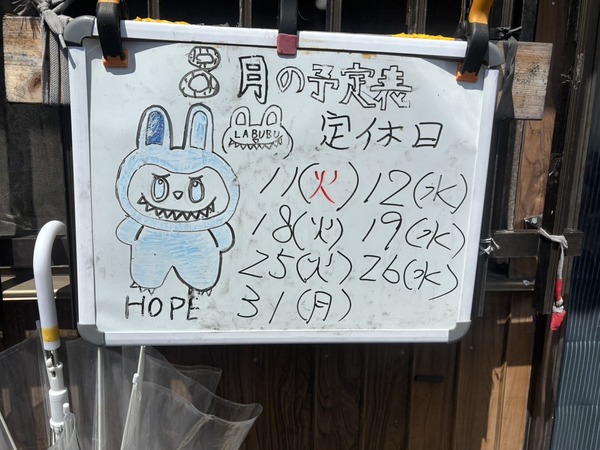 8月の予定表
LABUBU
定休日
11(火) 12(水)
18(火) 19(水)
25(火) 26(水)
31(月)
HOPE